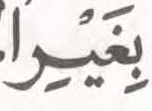 بِغَيْرِا